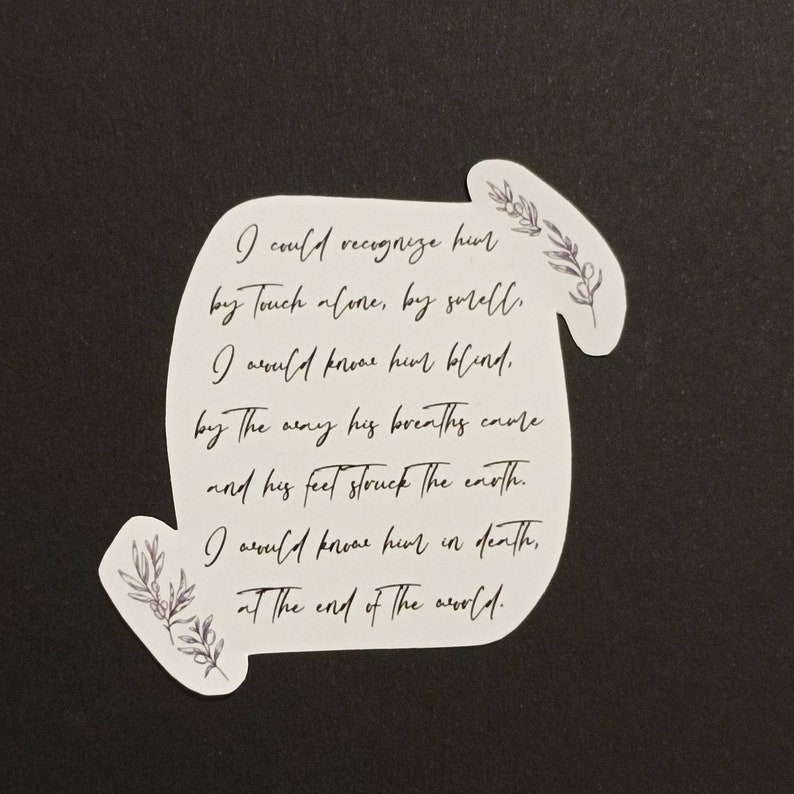 I could recognize him
by touch alone, by smell,
I would know him blind,
by the way his breaths came
and his feet struck the earth.
I would know him in death,
at the end of the world.